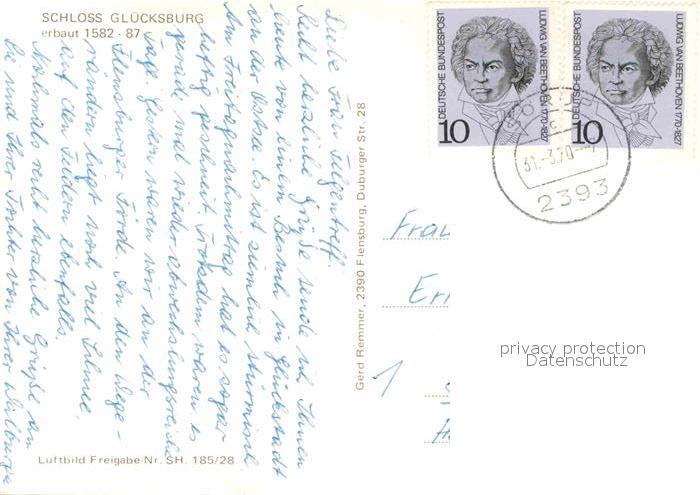 SCHLOSS GLÜCKSBURG
erbaut 1582 - 87
Liebe Frau Felgentreff.
Recht herzliche Grüße sende ich Ihnen
heute von einem Besuch in Glückstadt
an der Ostsee. Es ist ziemlich stürmisch.
Am Freitagnachmittag hat es sogar
geschneit. Trotzdem waren es
wieder abwechslungsreiche
Tage. Gestern waren wir an der
Flensburger Förde. An den Wege-
rändern liegt noch viel Schnee,
auf den Feldern ebenfalls.
Nochmals recht herzliche Grüße an
Sie und Ihrer Tochter von Ihrer
Luftbild Freigabe-Nr. SH. 185/28
Gerd Remmer, 2390 Flensburg, Duburger Str. 28
DEUTSCHE BUNDESPOST
LUDWIG VAN BEETHOVEN 1770-1827
10
DEUTSCHE BUNDESPOST
LUDWIG VAN BEETHOVEN 1770-1827
10
31.-3.70
2393
Frau
privacy protection
Datenschutz